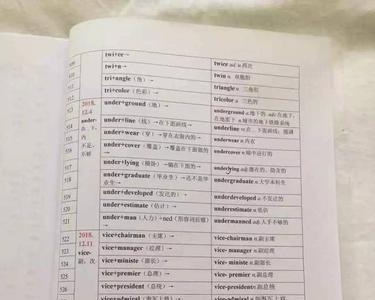 twi+ce→ twice ad.两次
509 twi+n→ twin n. 双胞胎
510 tri+angle（角）→ triangle n. 三角形
511 tri+color（色彩）→ tricolor a. 三色的
512 2018.12.4 under+ground（地）→ underground a.地下的 adv.在地下，在地底下 n.城市的地下铁路系统
513 under-在…下，内 under+line（线）→ 在下面画线 underline vt.在…下面画线；强调
不足，不够 under+wear（穿）→ 穿在衣服内的→ underwear n.内衣
under+cover（覆盖）→覆盖在下面做的→ undercover a.暗中进行的
under+lying（横卧）→躺在下面的→ underlying adj.潜在的，隐含的
518 under+graduate（毕业生）→还不是毕业生→ undergraduate n.大学本科生
519 under+developed（发达的）→ underdeveloped a.不发达的
520 under+estimate（估计）→ underestimate v.低估
521 under+man（人力）+ned（形容词后缀）→ undermanned a.人手不够的
522 2018.12.11 vice+chairman（主席）→ vice-chairman n.副主席
523 vice-副，次 vice+manager（经理）→ vice- manager n.副经理
524 vice+ministe（部长）→ vice- ministe n.副部长
525 vice+premier（总理）→ vice- premier n.副总理
526 vice+president（总统）→ vice-president n.副总统
vice+admiral（海军上将）→ vice-admiral n.海军上将